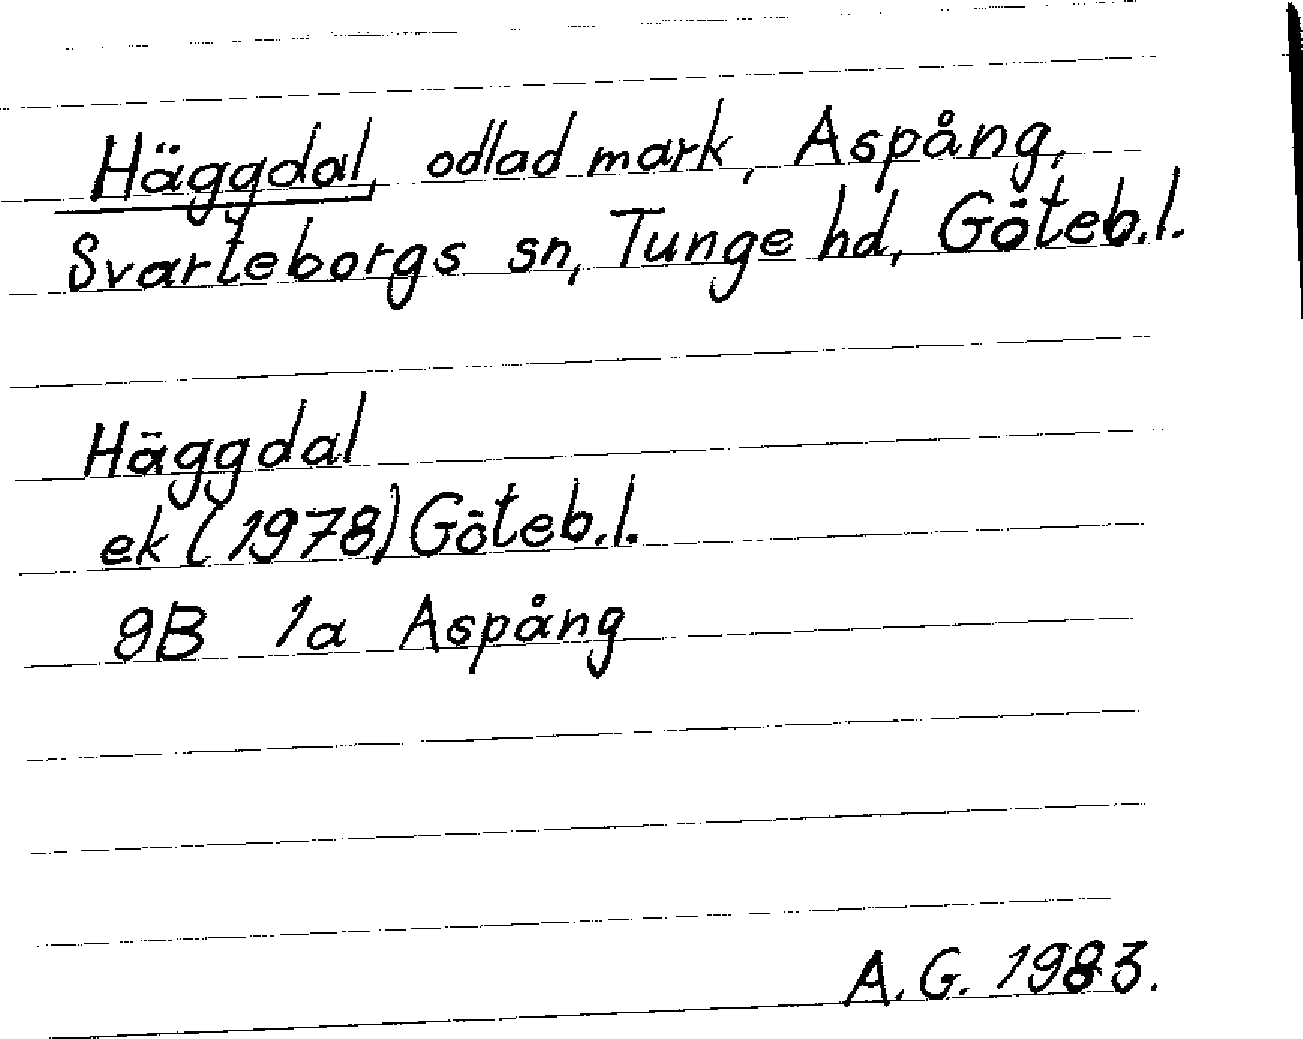 Häggdal, odlad mark, Aspång,
Svarteborgs sn, Tunge hd, Göteb.l.
Häggdal
ek (1978) Göteb.l.
9B 1a Aspång
A.G. 1983.